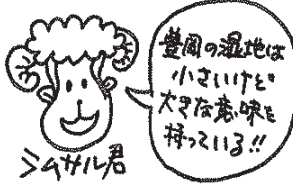 豊岡の湿地は
小さいけど
大きな意味を
持っている!!
ラムサル君